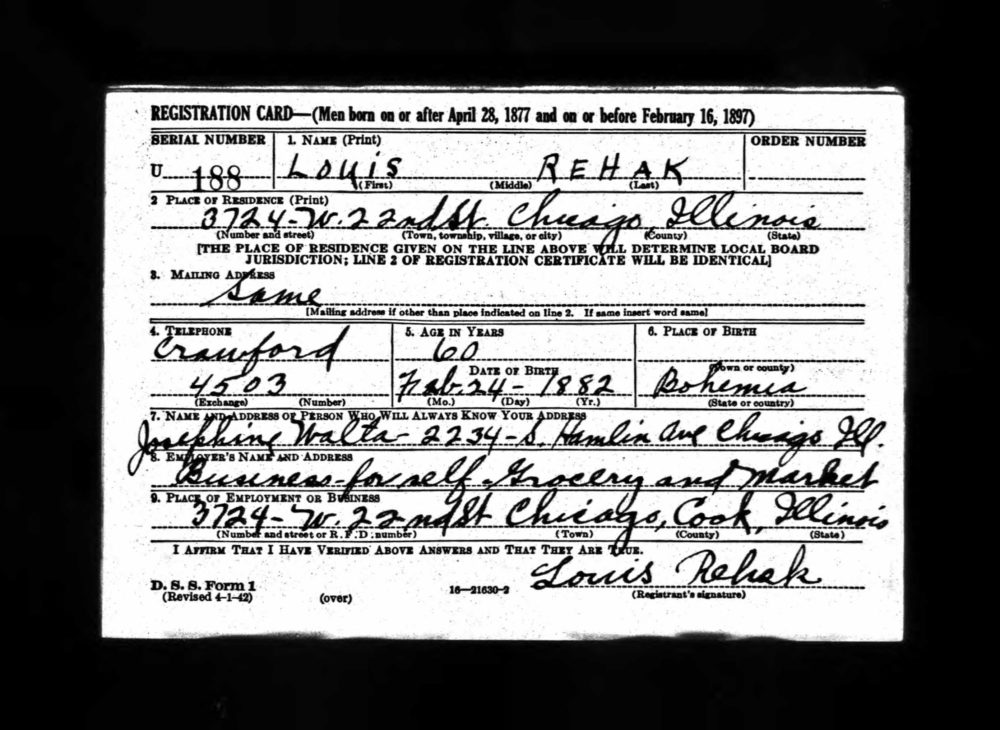 REGISTRATION CARD—(Men born on or after April 28, 1877 and on or before February 16, 1897)
SERIAL NUMBER 1. NAME (Print) ORDER NUMBER
U 188 LOUIS REHAK
(First) (Middle) (Last)
2 PLACE OF RESIDENCE (Print)
3724-W. 22nd St. Chicago Illinois
(Number and street) (Town, township, village, or city) (County) (State)
[THE PLACE OF RESIDENCE GIVEN ON THE LINE ABOVE WILL DETERMINE LOCAL BOARD
JURISDICTION; LINE 2 OF REGISTRATION CERTIFICATE WILL BE IDENTICAL]
3. MAILING ADDRESS
Same
[Mailing address if other than place indicated on line 2. If same insert word same]
4. TELEPHONE 5. AGE IN YEARS 6. PLACE OF BIRTH
Crawford 60
DATE OF BIRTH (Town or county)
4503 Feb. 24- 1882 Bohemia
(Exchange) (Number) (Mo.) (Day) (Yr.) (State or country)
7. NAME AND ADDRESS OF PERSON WHO WILL ALWAYS KNOW YOUR ADDRESS
Josephine Walta- 2234-S. Hamlin Ave Chicago Ill.
8. EMPLOYER'S NAME AND ADDRESS
Business-for self-Grocery and Market
9. PLACE OF EMPLOYMENT OR BUSINESS
3724-W. 22nd St Chicago, Cook, Illinois
(Number and street or R. F. D. number) (Town) (County) (State)
I AFFIRM THAT I HAVE VERIFIED ABOVE ANSWERS AND THAT THEY ARE TRUE.
Louis Rehak
D. S. S. Form 1
(Revised 4-1-42) (over) 16—21630-2 (Registrant's signature)